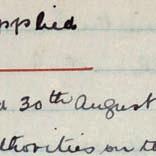 applied
30th August
authorities on